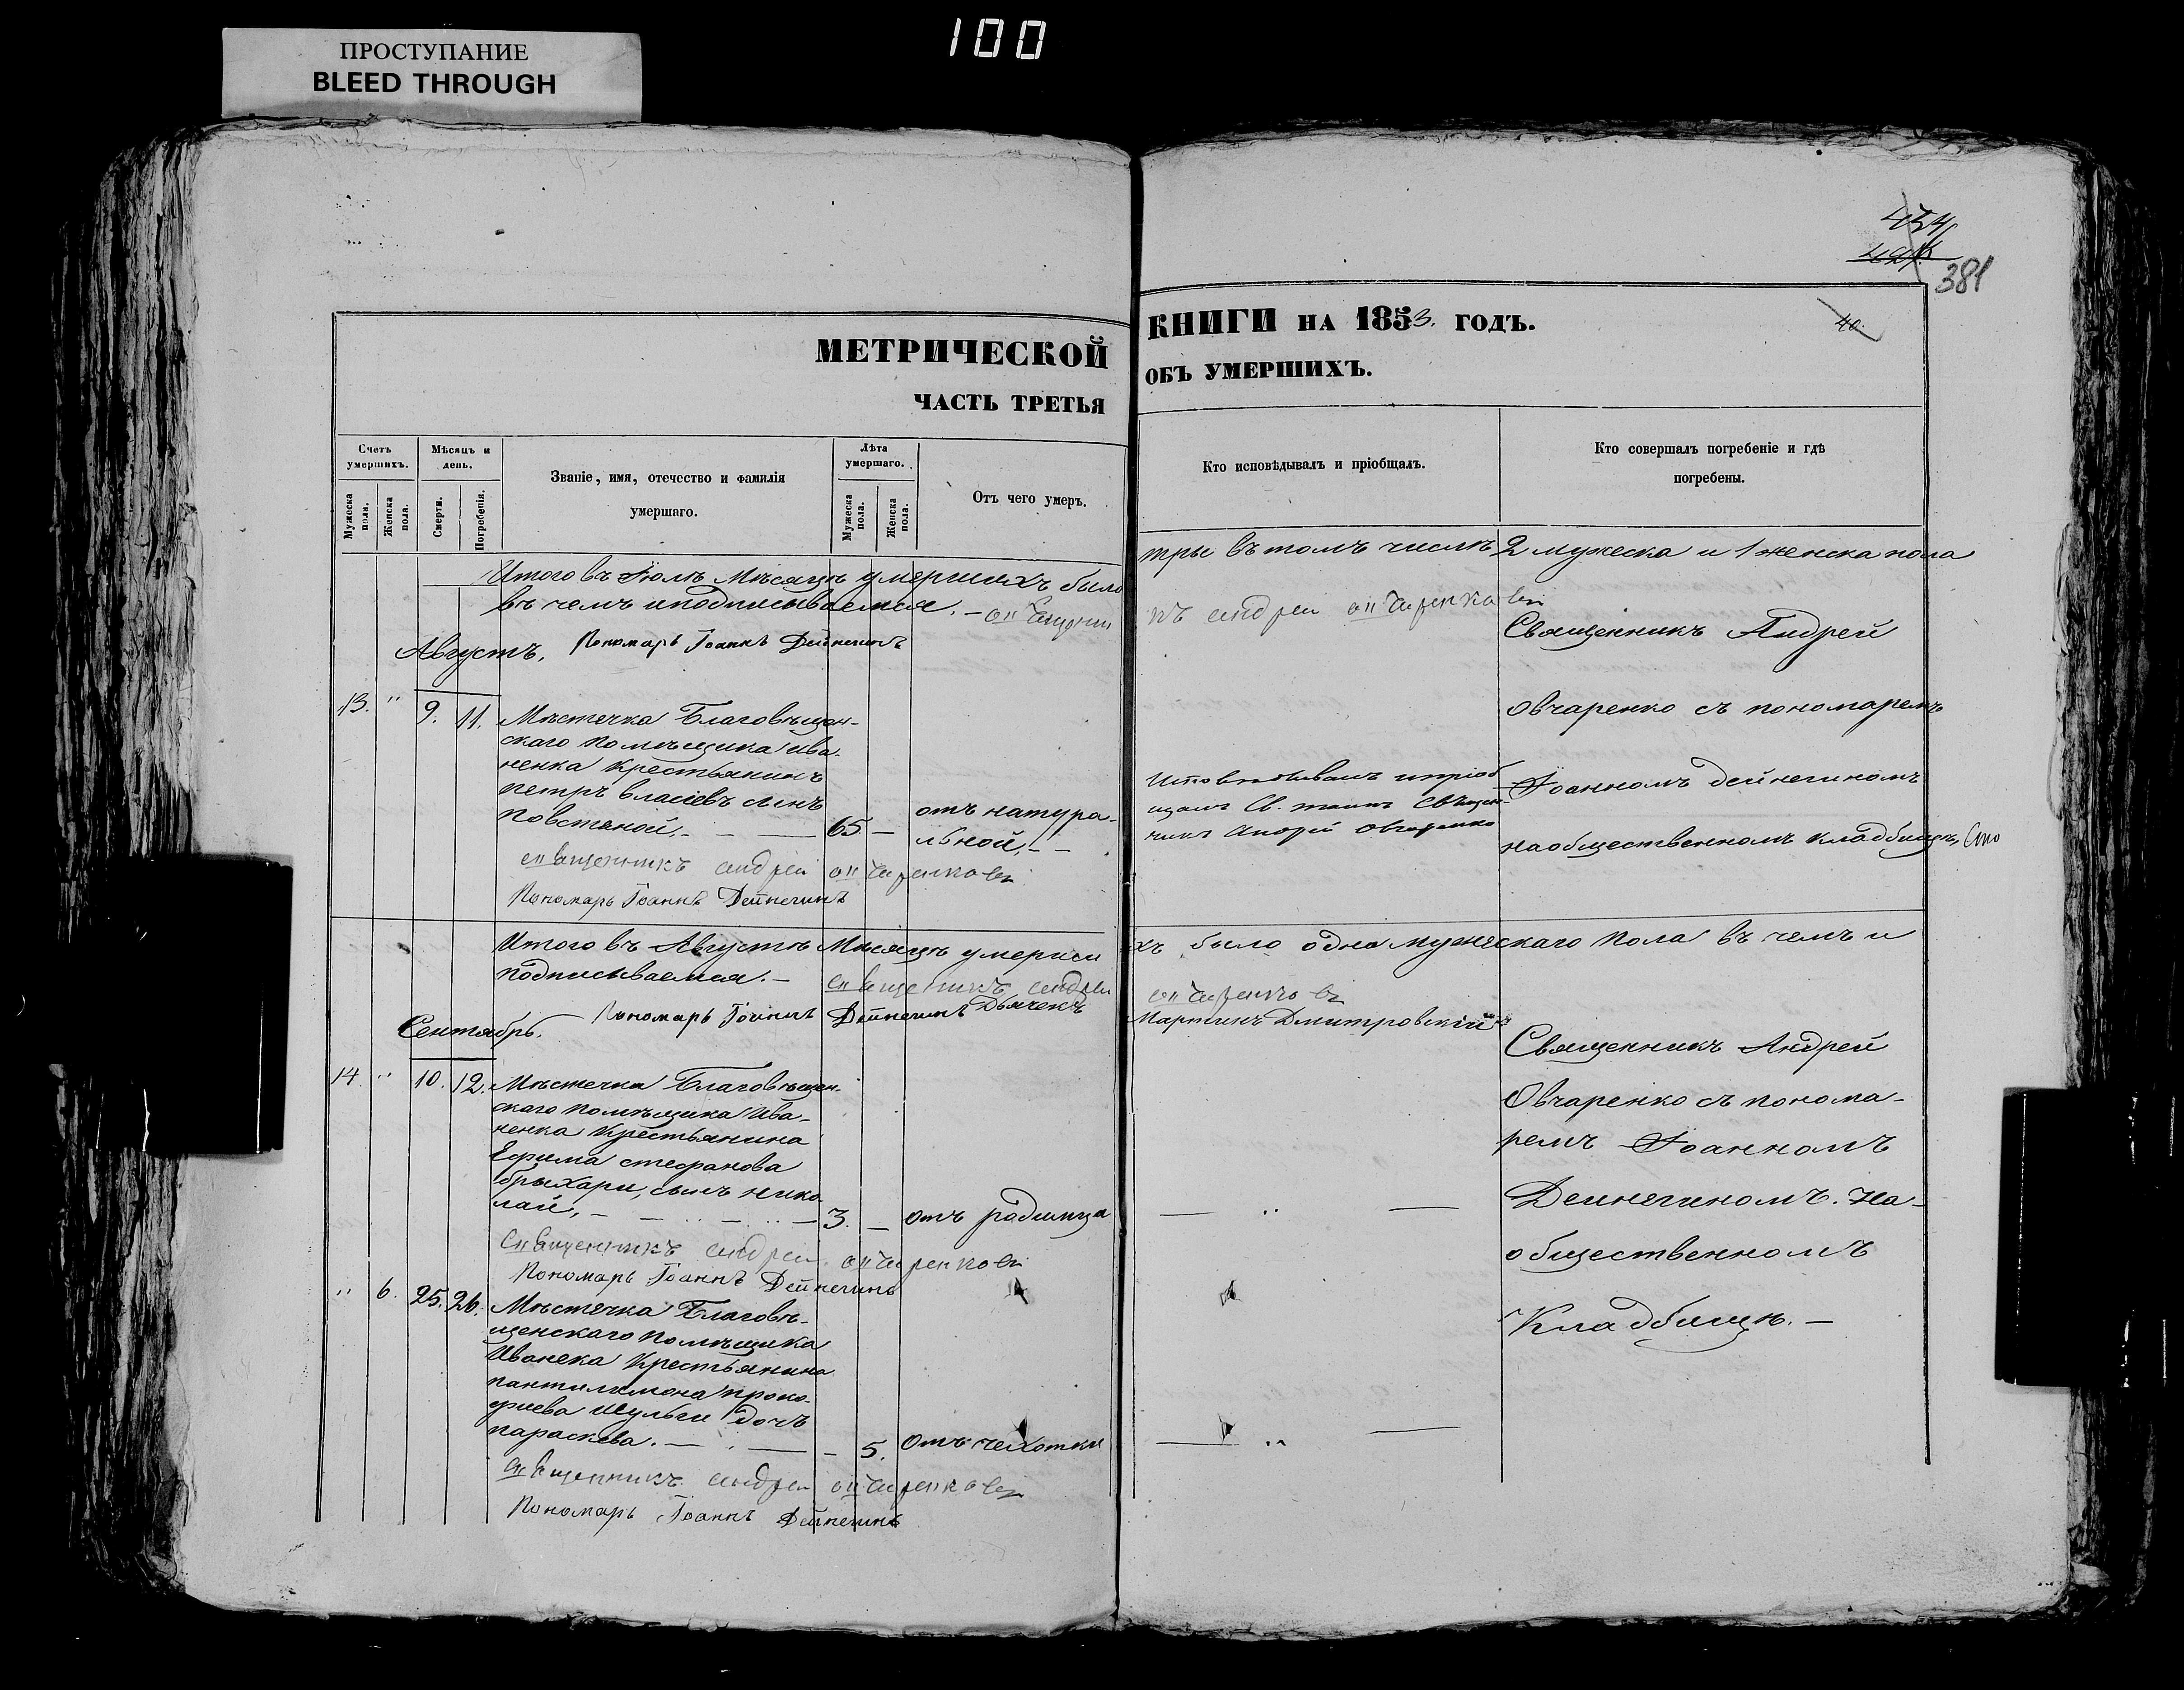 ПРОСТУПАНИЕ
BLEED THROUGH
100
434
381
40.
МЕТРИЧЕСКОЙ
ЧАСТЬ ТРЕТЬЯ
КНИГИ НА 1853. ГОДЪ.
ОБЪ УМЕРШИХЪ.
Счетъ умершихъ.
Мужеска пола.
Женска пола.
Мѣсяцъ и день.
Смерти.
Погребенія.
Званіе, имя, отечество и фамилія
умершаго.
Лѣта умершаго.
Мужеска пола.
Женска пола.
Отъ чего умеръ.
Кто исповѣдывалъ и пріобщалъ.
Кто совершалъ погребеніе и гдѣ
погребены.
Итого въ Іюлѣ Мѣсяцѣ умершихъ было три въ томъ числѣ 2 мужеска и 1 женска пола
въ чемъ и подписываемся. –
Пономарь Іоаннъ Дейнегинъ
Августъ.
13. " 9. 11. Мѣстечка Благовѣщен-
скаго помѣщика Ива-
ненка Крестьянинъ
петръ власіевъ сынъ
Повстяной, – — 65 –
отъ натура-
льной, – –
Священникъ Андрей Овчаренковъ
Пономарь Іоаннъ Дейнегинъ
Исповѣдывалъ и пріоб
щалъ Св. таинъ Священ-
никъ Андрей Овчаренко
Священникъ Андрей
Овчаренко съ пономаремъ
Іоанномъ Дейнегиномъ
на общественномъ кладбищѣ,
Итого въ Августѣ Мѣсяцѣ умерши хъ было одна мужескаго пола въ чемъ и
подписываемся. – Священникъ Андрей Овчаренковъ
Пономарь Іоаннъ Дейнегинъ Дьячекъ Мартинъ Дмитровскій
Сентябрь.
14. " 10. 12. Мѣстечка Благовѣщен-
скаго помѣщика Ива-
ненка Крестьянина
Ефима стефанова
брыхари, сынъ нико-
лай, – — 3. – отъ родимца — " —
Священникъ Андрей Овчаренковъ
Пономарь Іоаннъ Дейнегинъ
Священникъ Андрей
Овчаренко съ понома-
ремъ Іоанномъ
Дейнегиномъ. На-
общественномъ
Кладбищѣ. –
" 6. 25. 26. Мѣстечка Благовѣ-
щенскаго помѣщика
Иванека Крестьянина
пантилимона проко-
фиева Шульги дочь
параскева. – — – 5. Отъ чехотки — " —
Священникъ Андрей Овчаренковъ
Пономарь Іоаннъ Дейнегинъ